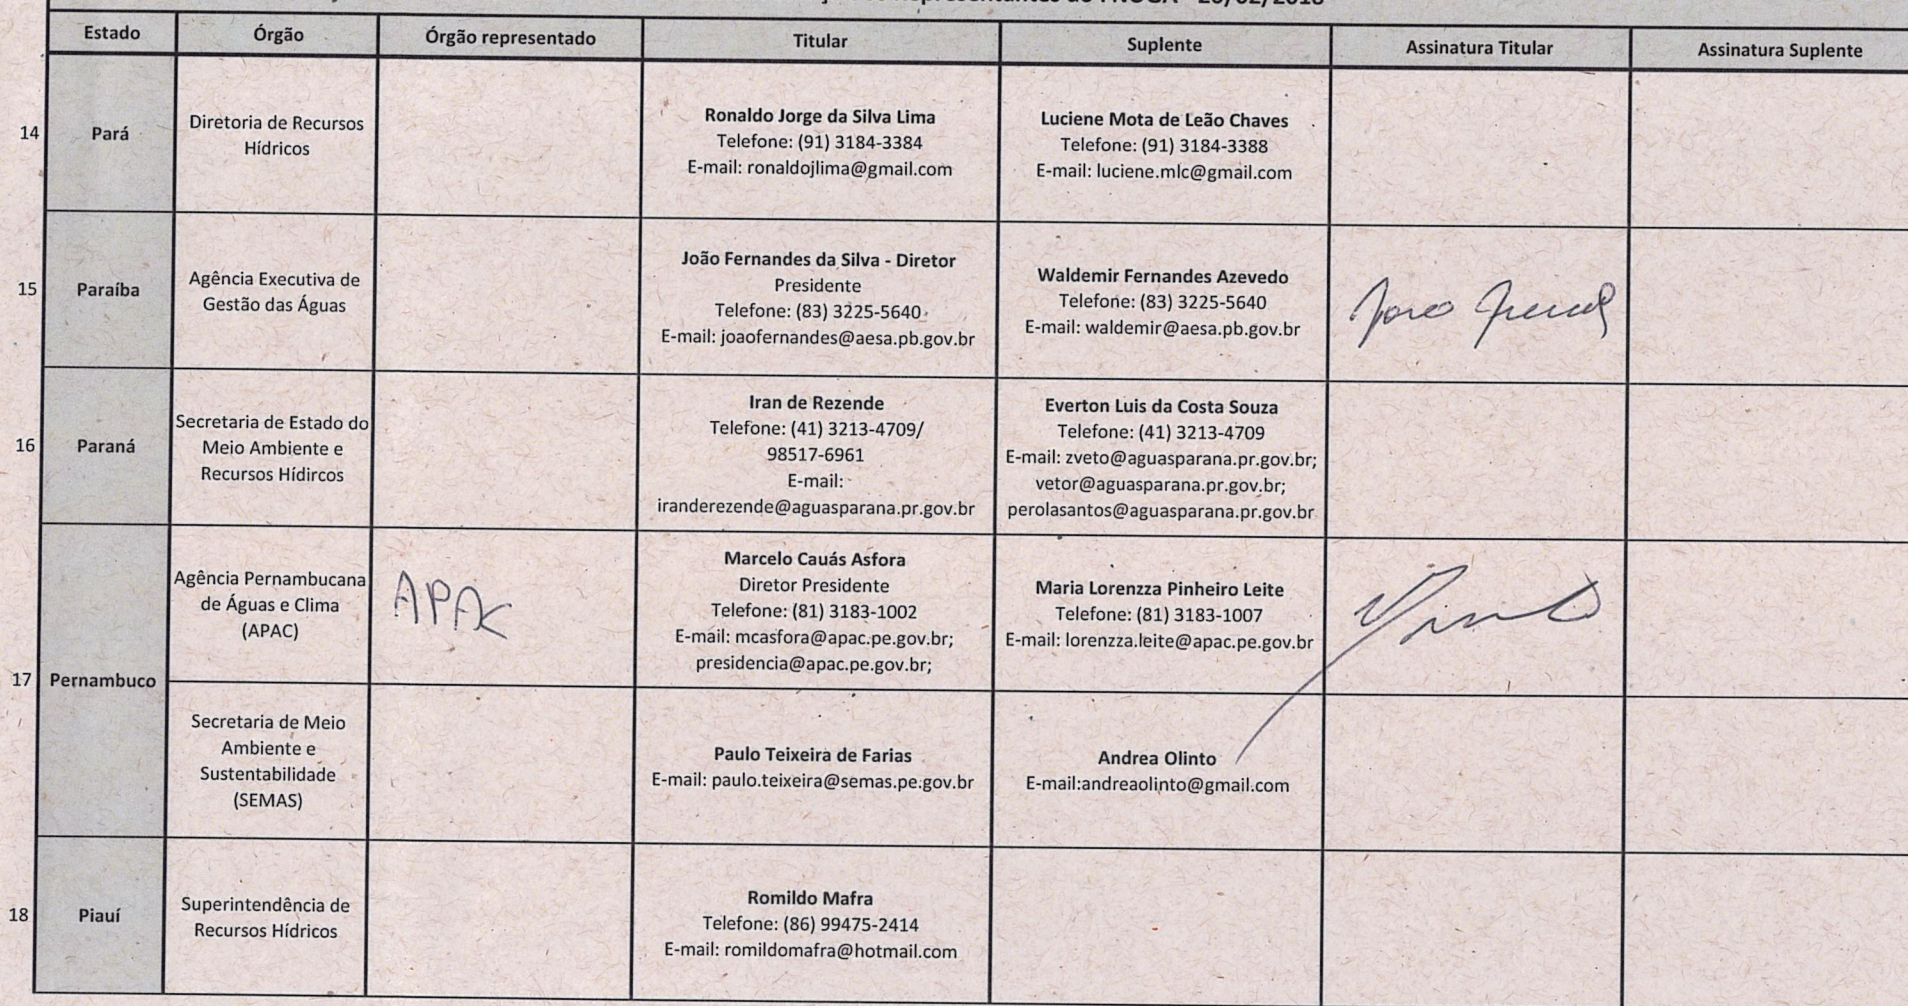 Representantes do FNOGA - 20/02/2018
Estado Órgão Órgão representado Titular Suplente Assinatura Titular Assinatura Suplente
14
Pará
Diretoria de Recursos
Hídricos
Ronaldo Jorge da Silva Lima
Telefone: (91) 3184-3384
E-mail: ronaldojlima@gmail.com
Luciene Mota de Leão Chaves
Telefone: (91) 3184-3388
E-mail: luciene.mlc@gmail.com
15
Paraíba
Agência Executiva de
Gestão das Águas
João Fernandes da Silva - Diretor
Presidente
Telefone: (83) 3225-5640
E-mail: joaofernandes@aesa.pb.gov.br
Waldemir Fernandes Azevedo
Telefone: (83) 3225-5640
E-mail: waldemir@aesa.pb.gov.br
16
Paraná
Secretaria de Estado do
Meio Ambiente e
Recursos Hídircos
Iran de Rezende
Telefone: (41) 3213-4709/
98517-6961
E-mail:
iranderezende@aguasparana.pr.gov.br
Everton Luis da Costa Souza
Telefone: (41) 3213-4709
E-mail: zveto@aguasparana.pr.gov.br;
vetor@aguasparana.pr.gov.br;
perolasantos@aguasparana.pr.gov.br
17
Pernambuco
Agência Pernambucana
de Águas e Clima
(APAC)
APAC
Marcelo Cauás Asfora
Diretor Presidente
Telefone: (81) 3183-1002
E-mail: mcasfora@apac.pe.gov.br;
presidencia@apac.pe.gov.br;
Maria Lorenzza Pinheiro Leite
Telefone: (81) 3183-1007
E-mail: lorenzza.leite@apac.pe.gov.br
Secretaria de Meio
Ambiente e
Sustentabilidade
(SEMAS)
Paulo Teixeira de Farias
E-mail: paulo.teixeira@semas.pe.gov.br
Andrea Olinto
E-mail:andreaolinto@gmail.com
18
Piauí
Superintendência de
Recursos Hídricos
Romildo Mafra
Telefone: (86) 99475-2414
E-mail: romildomafra@hotmail.com